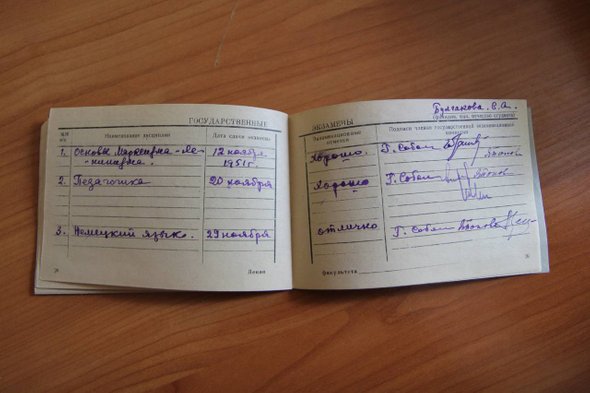 ГОСУДАРСТВЕННЫЕ
№№ п/п
Наименование дисциплин
Дата сдачи экзамена
1. Основы Марксизма-Ле-
нинизма.
12 ноября
1951 г.
2. Педагогика
20 ноября
3. Немецкий язык.
29 ноября
Декан
Булгакова. С. А.
(фамилия, имя, отчество студента)
ЭКЗАМЕНЫ
Экзаменационные отметки
Подписи членов государственной экзаменационной комиссии
хорошо.
Г. Собол
хорошо
Г. Собол
отлично
Г. Собол
факультета